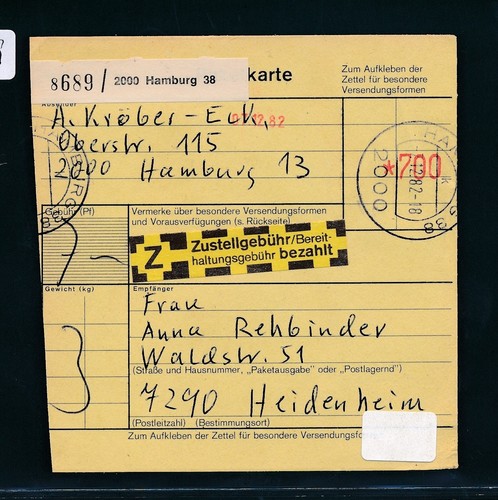 8689 / 2000 Hamburg 38
karte
Zum Aufkleben der
Zettel für besondere
Versendungsformen
Absender
A. Kröber-Eck,
07.12.82
Oberstr. 115
2000 Hamburg 13
*700
2000
12.82-18
38
Gebühr (Pf)
7,-
Vermerke über besondere Versendungsformen
und Vorausverfügungen (s. Rückseite)
Z
Zustellgebühr/Bereit-
haltungsgebühr bezahlt
Gewicht (kg)
3
Empfänger
Frau
Anna Rehbinder
Waldstr. 51
(Straße und Hausnummer, „Paketausgabe" oder „Postlagernd")
7290 Heidenheim
(Postleitzahl) (Bestimmungsort)
Zum Aufkleben der Zettel für besondere Versendungsfor